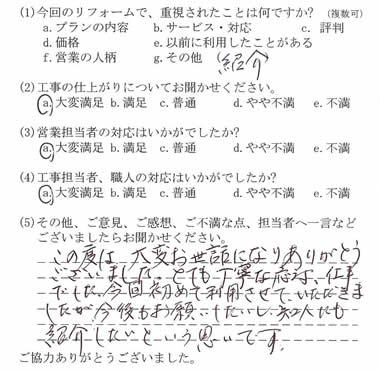 (1)今回のリフォームで、重視されたことは何ですか? (複数可)
a.プランの内容 b.サービス・対応 c. 評判
d.価格 e.以前に利用したことがある
f.営業の人柄 g.その他 (紹介)
(2)工事の仕上がりについてお聞かせください。
a.大変満足 b.満足 c.普通 d.やや不満 e.不満
(3)営業担当者の対応はいかがでしたか?
a.大変満足 b.満足 c.普通 d.やや不満 e.不満
(4)工事担当者、職人の対応はいかがでしたか?
a.大変満足 b.満足 c.普通 d.やや不満 e.不満
(5)その他、ご意見、ご感想、ご不満な点、担当者へ一言など
ございましたらお聞かせください。
この度は、大変お世話になりありがとう
ございました。とても丁寧な応対、仕事
でした。今回初めて利用させていただきま
したが今後もお願いしたいし、知人にも
紹介したいという思いです。
ご協力ありがとうございました。